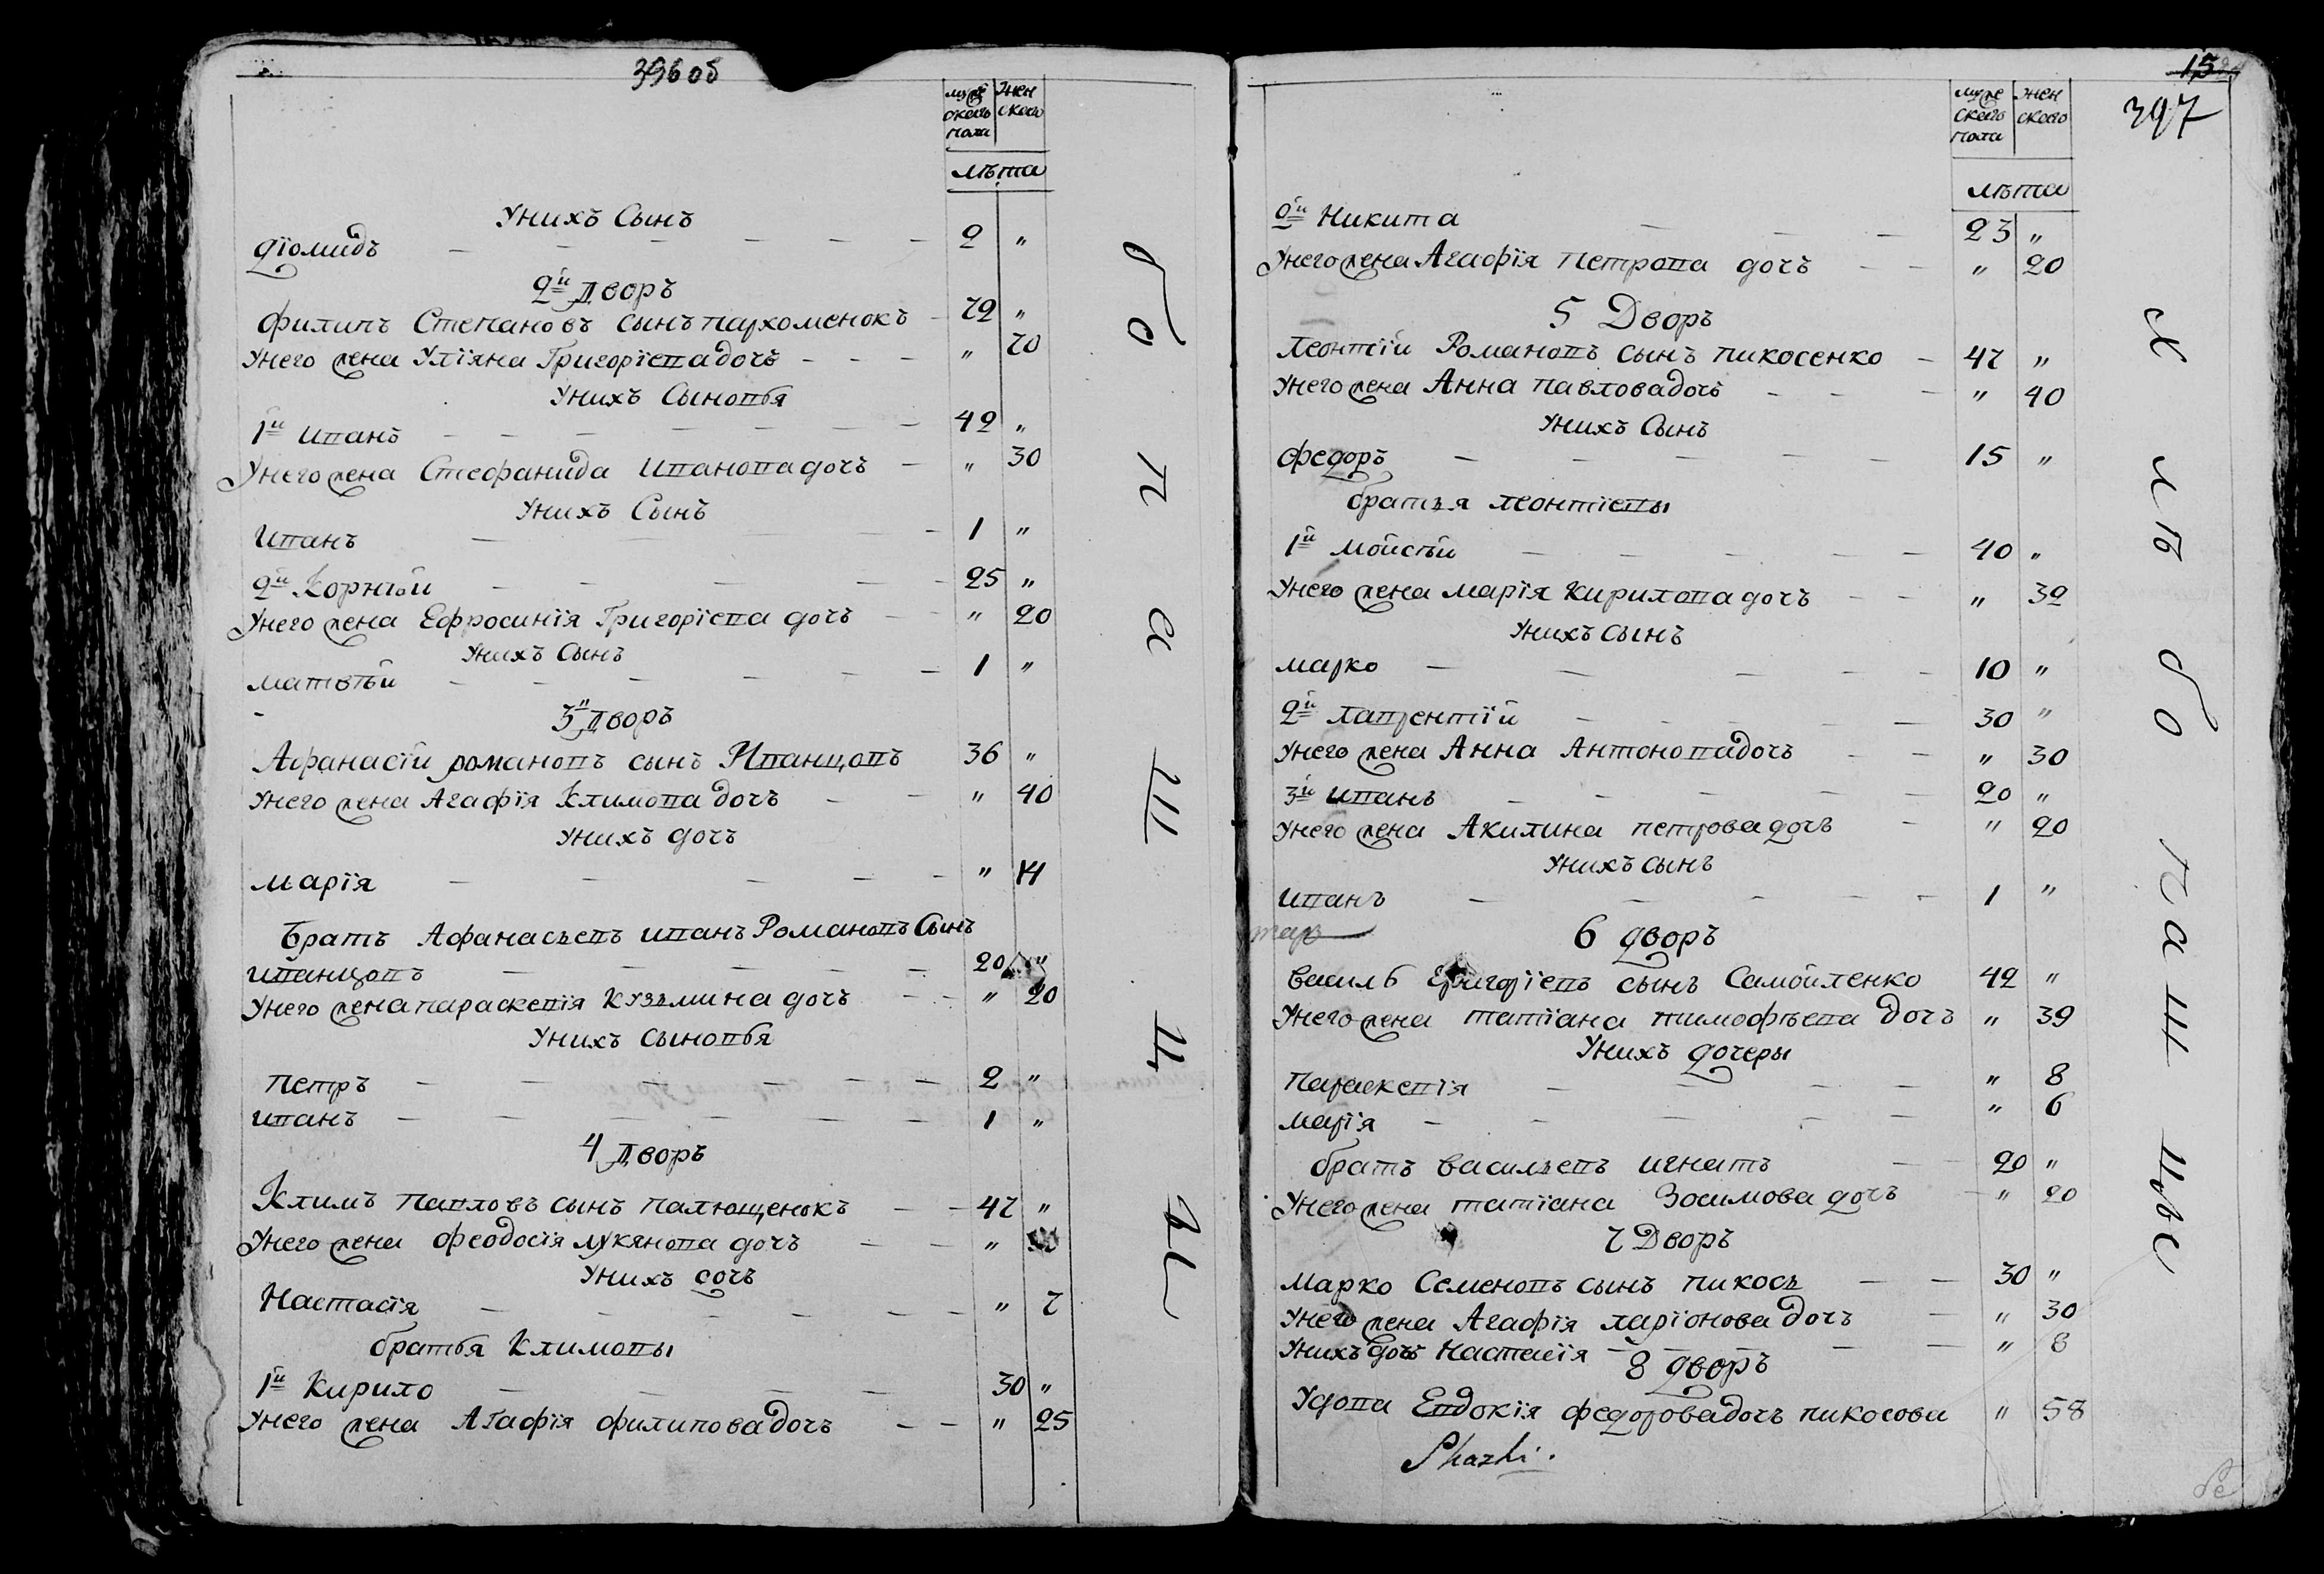 396 об
муже
ского
пола
жен
ского
лѣта
Унихъ Сынъ
діомидъ 2 "
2й Дворъ
филипъ Степановъ сынъ пархоменокъ 72 "
Унего жена Уліяна Григоріева дочъ " 70
Унихъ Сыновья
1й иванъ 42 "
Унего жена Стефанида иванова дочъ " 30
Унихъ Сынъ
иванъ 1 "
2й Корнѣй 25 "
Унего жена Ефросинія Григоріева дочъ " 20
Унихъ Сынъ
матвѣй 1 "
3й Дворъ
Афанасій романовъ сынъ Иванцовъ 36 "
Унего жена Агафія Климова дочъ " 40
Унихъ дочъ
марія " 14
братъ Афанасьевъ иванъ Романовъ Сынъ
иванцовъ 20 "
Унего жена параскевія Кузьмина дочъ " 20
Унихъ сыновья
петръ 2 "
иванъ 1 "
4 Дворъ
Климъ павловъ сынъ палющенокъ 47 "
Унего жена феодосія лукянова дочъ "
Унихъ дочъ
Настасія " 7
братья Климовы
1й Кирило 30 "
Унего жена Агафія филипова дочъ " 25
бопащцы
15
397
муже
ского
пола
жен
ского
лѣта
2й Никита 23 "
Унего жена Агафія петрова дочъ " 20
5 Дворъ
Леонтій Романовъ сынъ пикосенко 47 "
Унего жена Анна павлова дочъ " 40
Унихъ Сынъ
федоръ 15 "
братья леонтіевы
1й мойсѣй 40 "
Унего жена марія кирилова дочъ " 32
Унихъ сынъ
марко 10 "
2й лаврентій 30 "
Унего жена Анна Антонова дочъ " 30
3й иванъ 20 "
Унего жена Акилина петрова дочъ " 20
Унихъ сынъ
иванъ 1 "
6 дворъ
василь Григоріевъ сынъ Самойленко 42 "
Унего жена татіана тимофѣева дочъ " 39
Унихъ дочеры
параскевія " 8
марія " 6
братъ васильевъ игнатъ 20 "
Унего жена татіана Зосимова дочъ " 20
7 Дворъ
марко Семеновъ сынъ пикосъ 30 "
Унего жена Агафія ларіонова дочъ " 30
Унихъ дочъ Настасія " 8
8 дворъ
Удова Евдокія федорова дочъ пикосова " 58
хлѣбопащцы